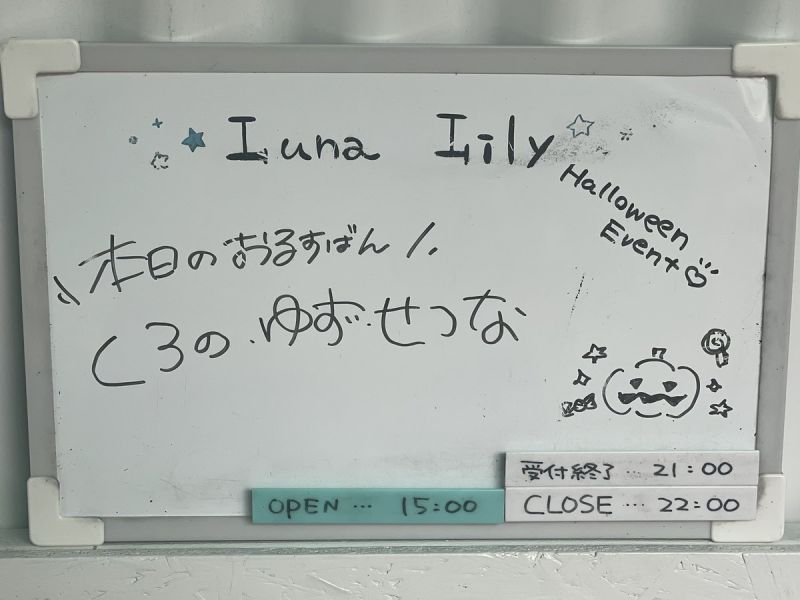 Luna Lily
Halloween
Event
本日のおるすばん
くろの・ゆず・せつな
受付終了… 21:00
OPEN… 15:00
CLOSE… 22:00